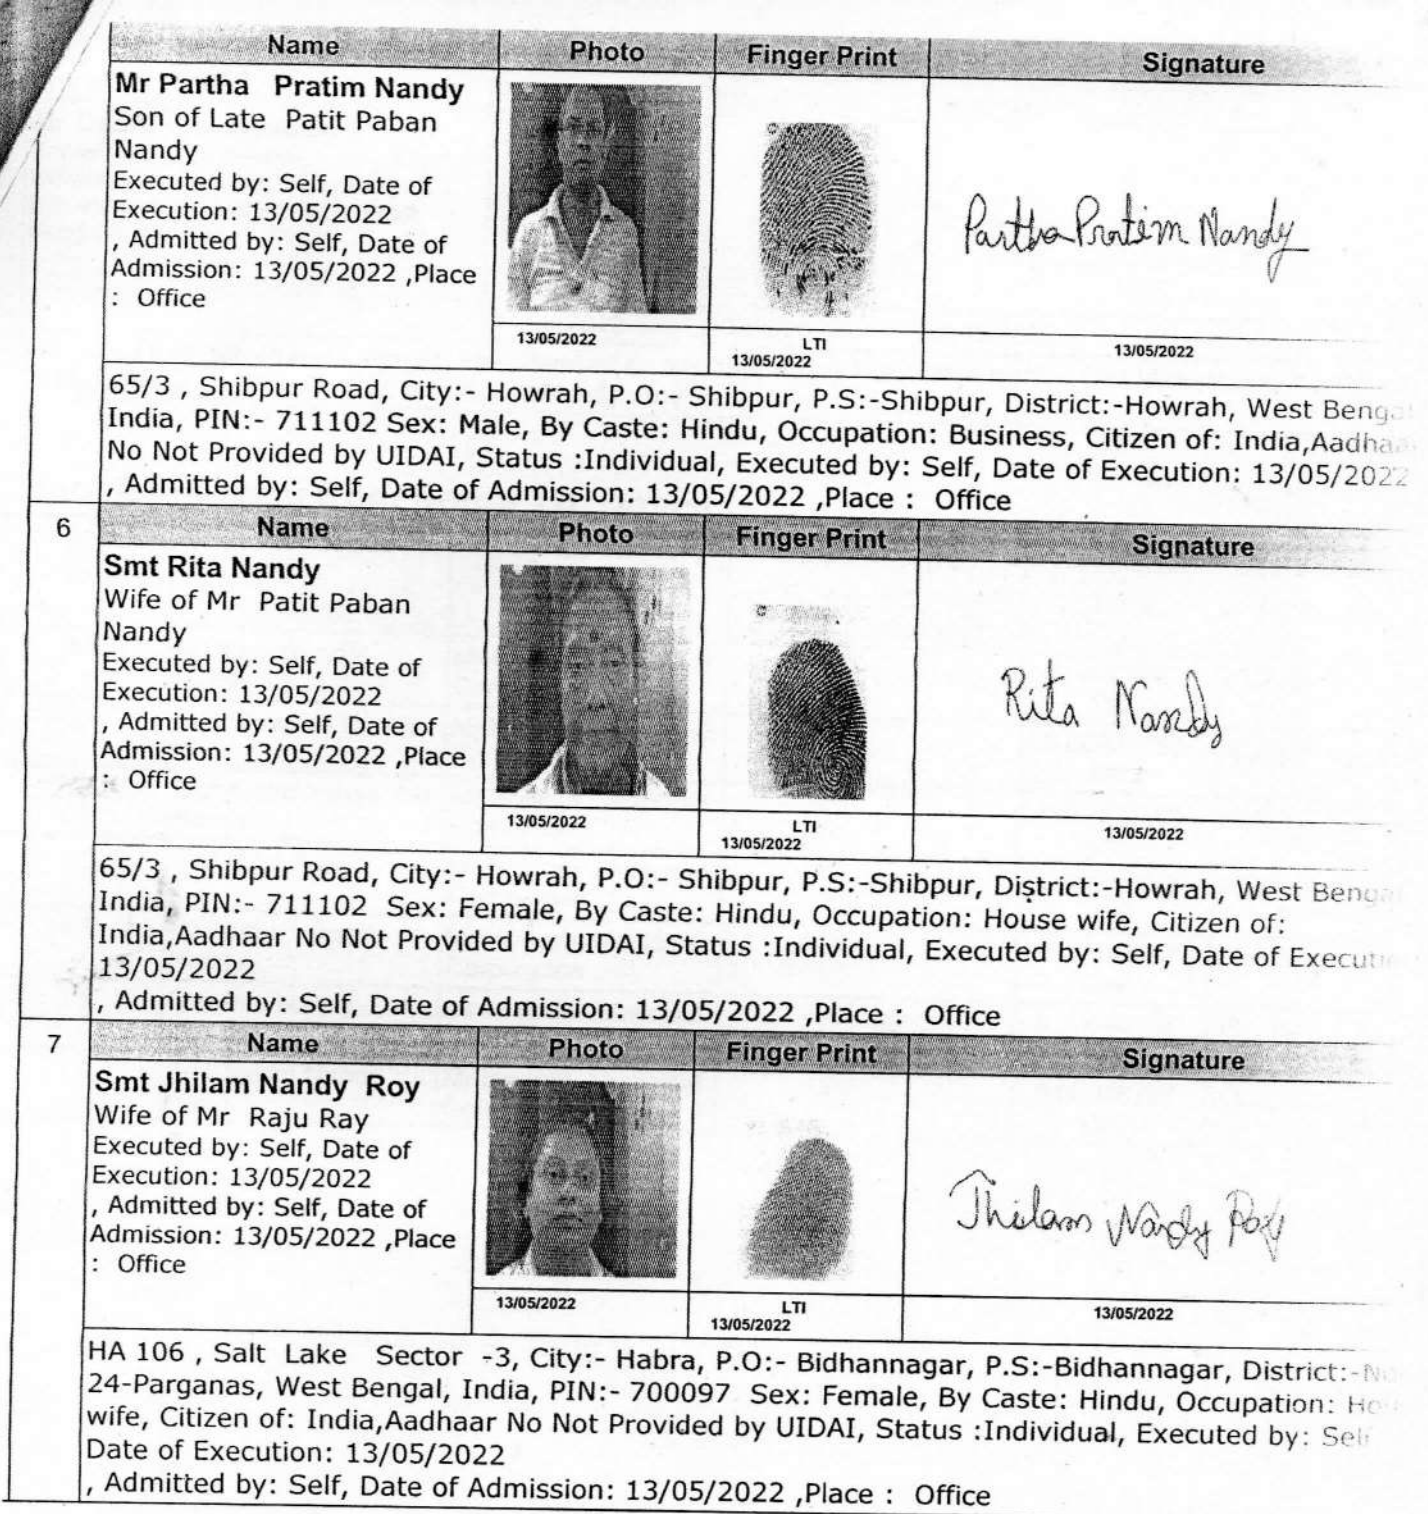 Name Photo Finger Print Signature
Mr Partha Pratim Nandy
Son of Late Patit Paban
Nandy
Executed by: Self, Date of
Execution: 13/05/2022
, Admitted by: Self, Date of
Admission: 13/05/2022 ,Place
: Office
Partha Pratim Nandy
13/05/2022
LTI
13/05/2022
13/05/2022
65/3 , Shibpur Road, City:- Howrah, P.O:- Shibpur, P.S:-Shibpur, District:-Howrah, West Benga
India, PIN:- 711102 Sex: Male, By Caste: Hindu, Occupation: Business, Citizen of: India,Aadhaa
No Not Provided by UIDAI, Status :Individual, Executed by: Self, Date of Execution: 13/05/2022
, Admitted by: Self, Date of Admission: 13/05/2022 ,Place : Office
6 Name Photo Finger Print Signature
Smt Rita Nandy
Wife of Mr Patit Paban
Nandy
Executed by: Self, Date of
Execution: 13/05/2022
, Admitted by: Self, Date of
Admission: 13/05/2022 ,Place
: Office
Rita Nandy
13/05/2022
LTI
13/05/2022
13/05/2022
65/3 , Shibpur Road, City:- Howrah, P.O:- Shibpur, P.S:-Shibpur, District:-Howrah, West Benga
India, PIN:- 711102 Sex: Female, By Caste: Hindu, Occupation: House wife, Citizen of:
India,Aadhaar No Not Provided by UIDAI, Status :Individual, Executed by: Self, Date of Executi
13/05/2022
, Admitted by: Self, Date of Admission: 13/05/2022 ,Place : Office
7 Name Photo Finger Print Signature
Smt Jhilam Nandy Roy
Wife of Mr Raju Ray
Executed by: Self, Date of
Execution: 13/05/2022
, Admitted by: Self, Date of
Admission: 13/05/2022 ,Place
: Office
Jhilam Nandy Roy
13/05/2022
LTI
13/05/2022
13/05/2022
HA 106 , Salt Lake Sector -3, City:- Habra, P.O:- Bidhannagar, P.S:-Bidhannagar, District:-No
24-Parganas, West Bengal, India, PIN:- 700097 Sex: Female, By Caste: Hindu, Occupation: Ho
wife, Citizen of: India,Aadhaar No Not Provided by UIDAI, Status :Individual, Executed by: Self
Date of Execution: 13/05/2022
, Admitted by: Self, Date of Admission: 13/05/2022 ,Place : Office